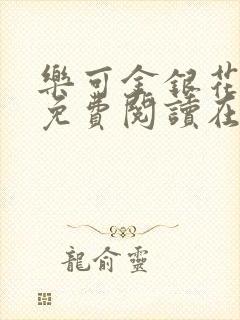 樂可金銀花
免費閱讀在
龍俞靈